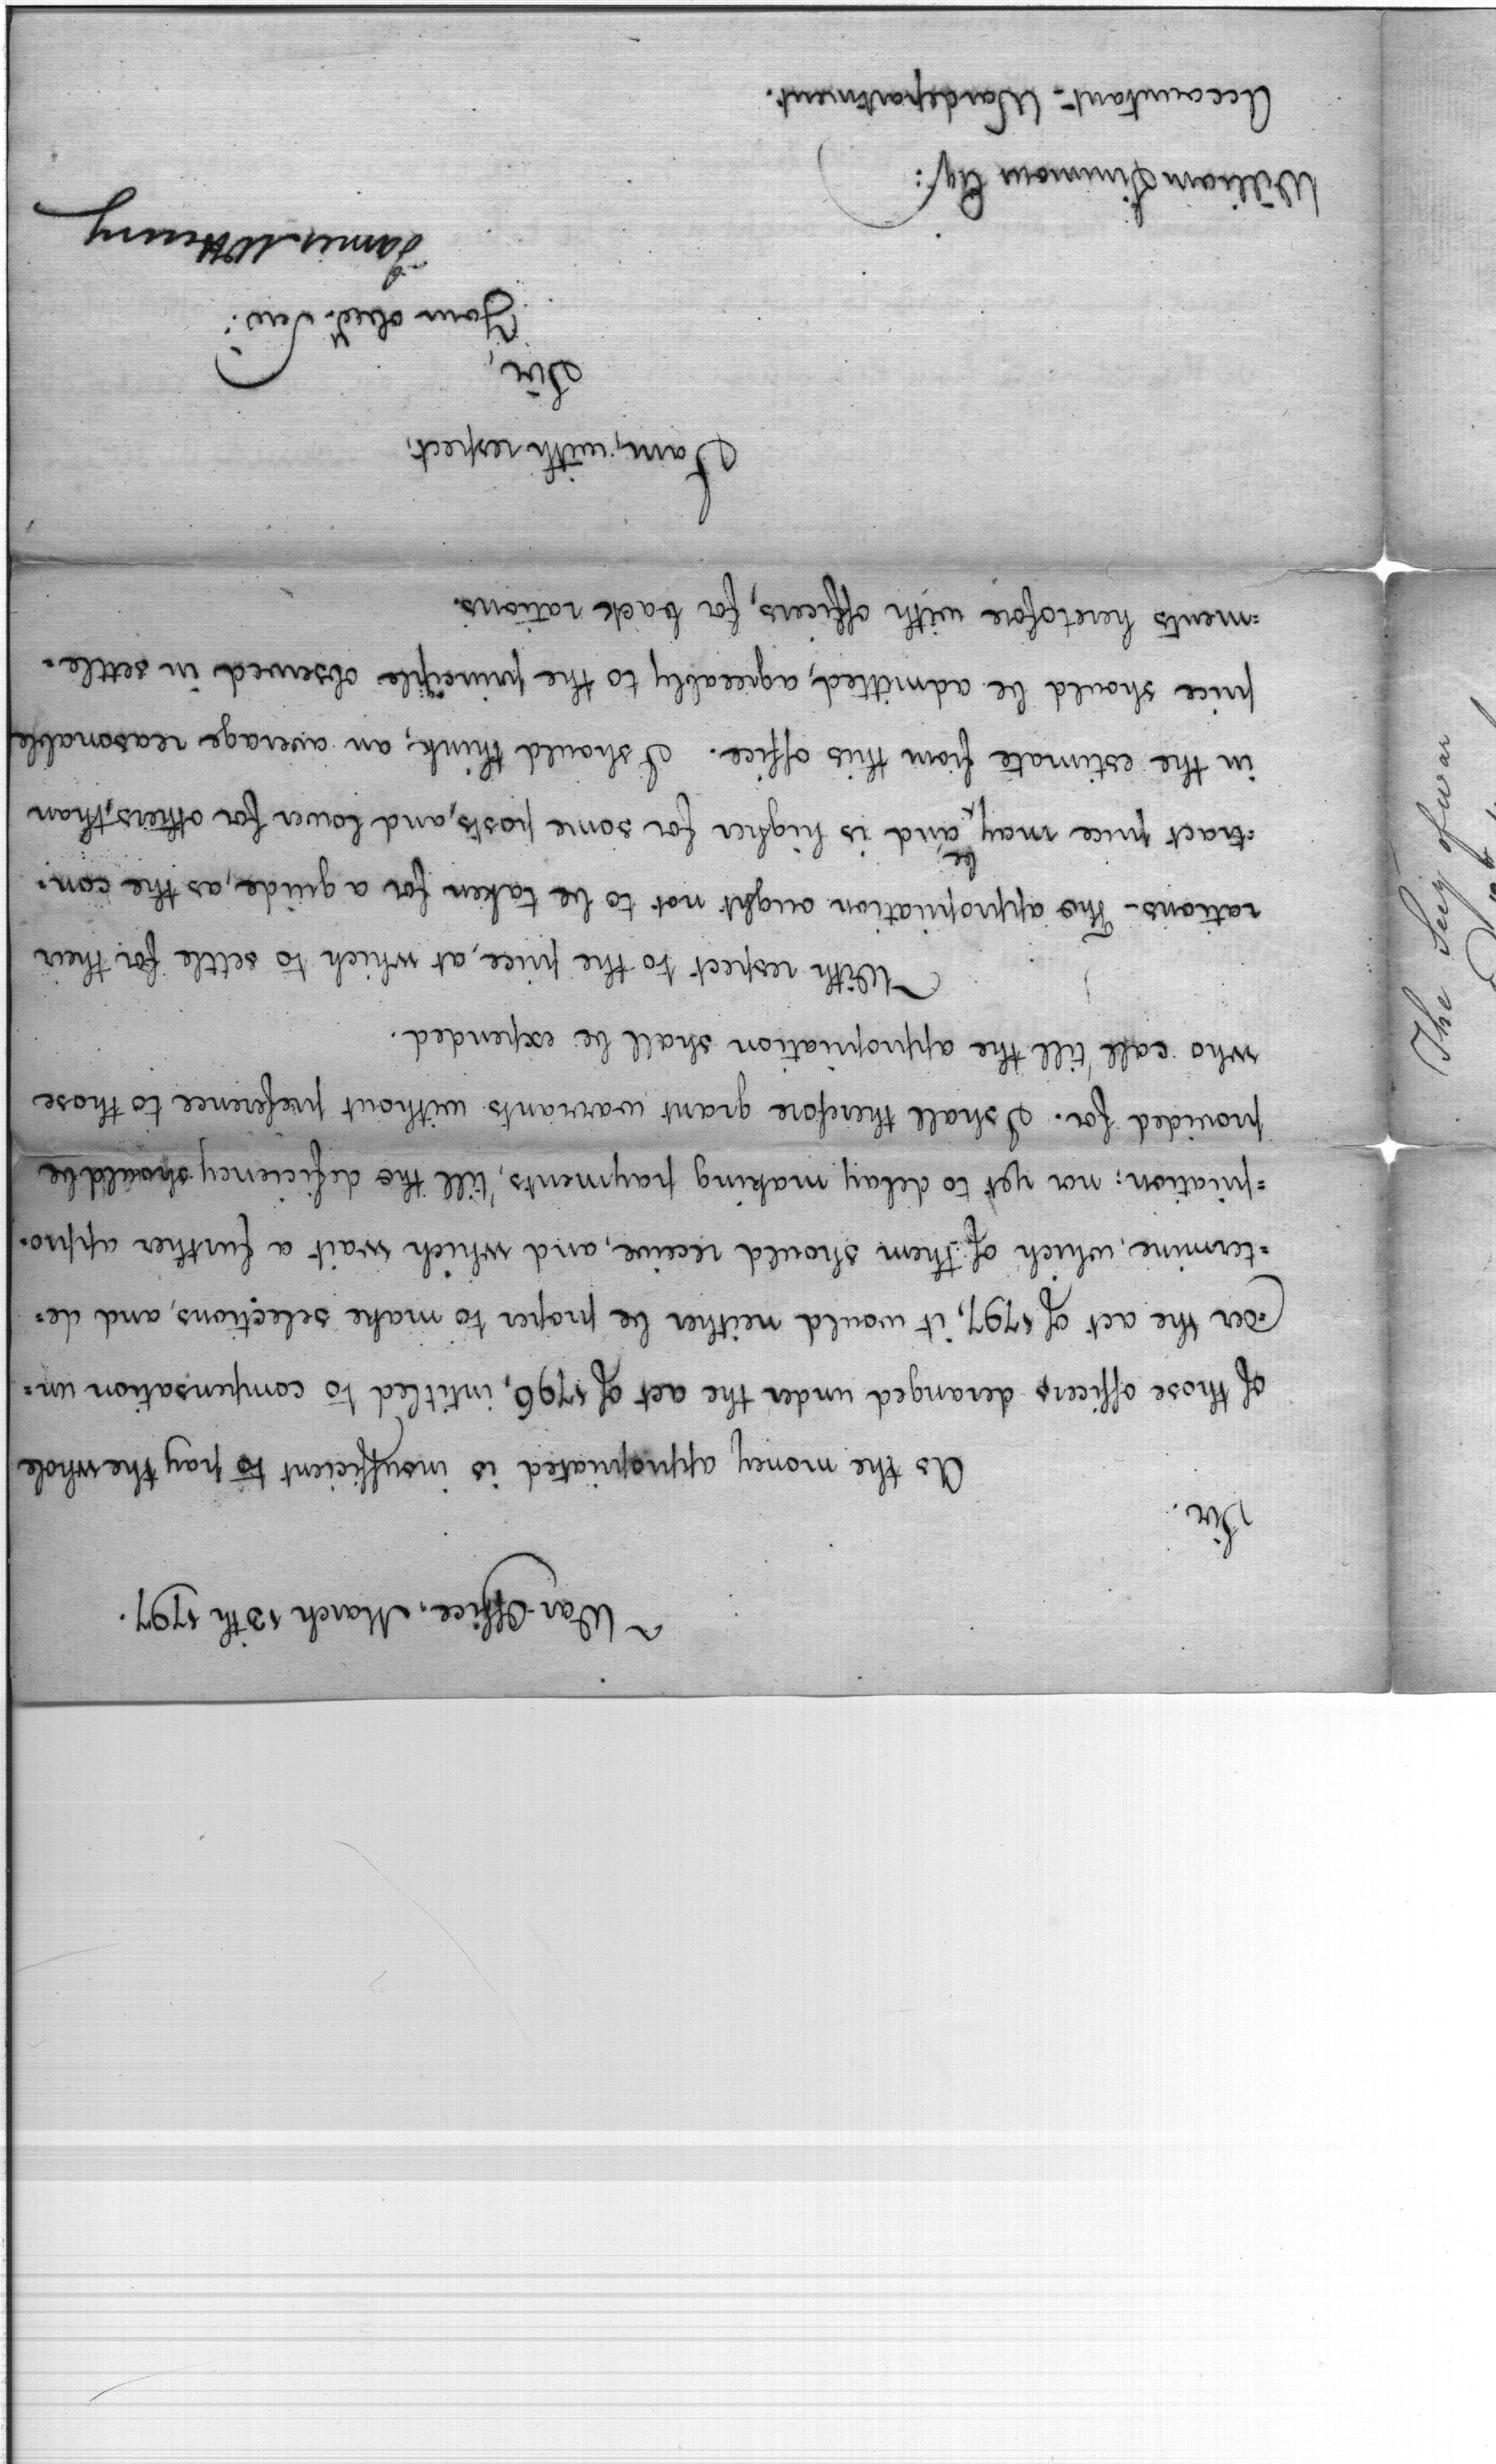 War-Office, March 13th 1797.
Sir.
As the money appropriated is insufficient to pay the whole
of those officers deranged under the act of 1796, intitled to compensation un=
=der the act of 1797, it would neither be proper to make selections, and de=
=termine, which of them should receive, and which wait a further appro=
=priation; nor yet to delay making payments, 'till the deficiency should be
provided for. I shall therefore grant warrants without preference to those
who call 'till the appropriation shall be expended.
With respect to the price, at which to settle for their
rations- The appropriation ought not to be taken for a guide, as the con=
be
=tract price may, and is higher for some posts, and lower for others, than
in the estimate from this office. I should think, an average reasonable
price should be admitted, agreeably to the principle observed in settle=
=ments heretofore with officers, for back rations.
I am, with respect,
Sir,
Your obed. Serv.
James McHenry
William Simmons Esqr:
Accountant- War department.
The Secy of war